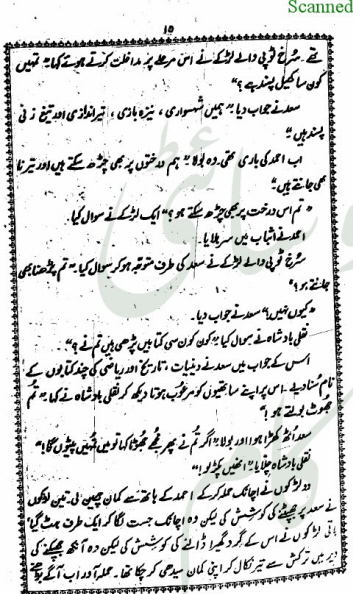 Scanned
۱۵
تھے۔ سُرخ ٹوپی والے لڑکے نے اس مرحلے پر مداخلت کرتے ہوئے کہا "تمہیں
کون سا کھیل پسند ہے؟"
سعد نے جواب دیا۔ "ہمیں شہسواری، نیزہ بازی، تیر اندازی اور تیغ زنی
پسند ہیں"
اب احمد کی باری تھی وہ بولا "ہم درختوں پر بھی چڑھ سکتے ہیں اور تیرنا
بھی جانتے ہیں"
"تم اس درخت پر بھی چڑھ سکتے ہو؟" ایک لڑکے نے سوال کیا۔
احمد نے اثبات میں سر ہلایا۔
سُرخ ٹوپی والے لڑکے نے سعد کی طرف متوجہ ہو کر سوال کیا۔ "تم پڑھنا بھی
جانتے ہو؟"
"کیوں نہیں" سعد نے جواب دیا۔
نقلی بادشاہ نے سوال کیا "کون کون سی کتابیں پڑھی ہیں تم نے؟"
اس کے جواب میں سعد نے دینیات، تاریخ اور ریاضی کی چند کتابوں کے
نام سُنا دیے۔ اس پر اپنے ساتھیوں کو مرعوب ہوتا دیکھ کر نقلی بادشاہ نے کہا "تُم
جھوٹ بولتے ہو!"
سعد اُٹھ کھڑا ہوا اور بولا "اگر تُم نے پھر مجھے جھوٹا کہا تو میں تمہیں پیٹوں گا!"
نقلی بادشاہ چلّایا "انھیں پکڑ لو!"
دو لڑکوں نے اچانک حملہ کر کے احمد کے ہاتھ سے کمان چھین لی۔ تین لڑکوں
نے سعد پر جھپٹنے کی کوشش کی لیکن وہ اچانک جست لگا کر ایک طرف ہٹ گیا
باقی لڑکوں نے اس کے گرد گھیرا ڈالنے کی کوشش کی لیکن وہ آنکھ جھپکنے کی
دیر میں ترکش سے تیر نکال کر اپنی کمان سیدھی کر چکا تھا۔ حملہ آور اب آگے بڑھنے